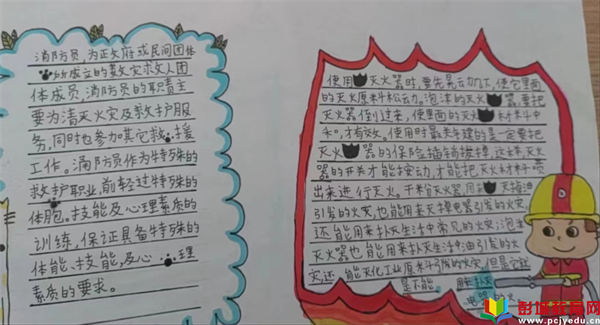 消防员,为正政府或民间团体
所成立的救灾求人团
体成员,消防员的职责主
要为清灭火灾及救护服
务,同时也参加其它救援
工作。消防员作为特殊的
救护职业,前轻过特殊的
体胞。技能及心理素质的
训练,保证具备特殊的
体能、技能,及心理
素质的要求。
使用灭火器时,要先晃动几下,使它里面
的灭火原料松动。泡沫的灭火器,要把
灭火器倒过来,使里面的灭火
才有效。使用时最关键的是一定要把
灭火器的保险插销拔掉,这样灭火
器的开关才能按动,才能把灭火材料
出来进行灭火。干粉灭火器,用
引发的火灾,也能用来灭掉电器引发的火灾,
还能用来扑灭生活中常见的火灾;泡沫
灭火器也能用来扑灭生活中油引发的火
灾还能灭化工业原料引发的火灾,但是它就
是不能
电器的
彭城教育网
www.pcjyedu.cn